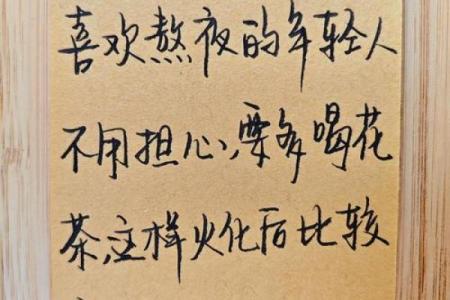 喜欢熬夜的年轻人
不用担心,要多喝花
茶,这样火化后比较